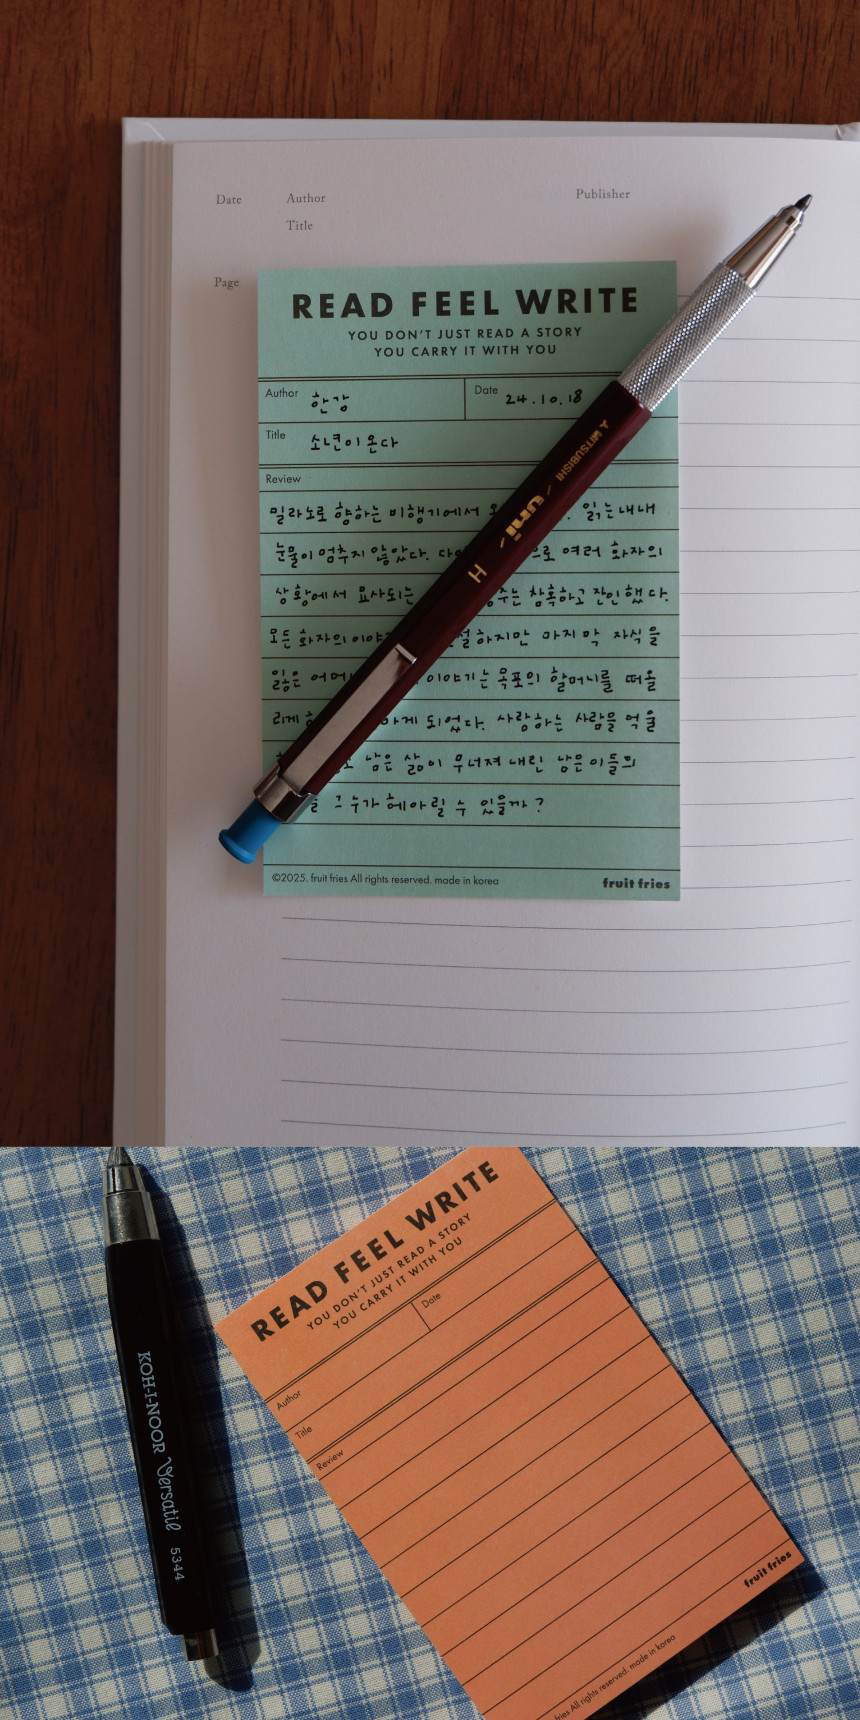 Date Author Publisher
Title
Page
READ FEEL WRITE
YOU DON'T JUST READ A STORY
YOU CARRY IT WITH YOU
Author 한강 Date 24.10.18
Title 소년이 온다
Review
밀라노로 향하는 비행기에서 읽는내내
눈물이 멈추지 않았다. 여러 화자의
상황에서 묘사되는 참혹하고 잔인했다.
모든 화자의 하지만 마지막 자식을
잃은 이야기는 목포의 할머니를 떠올
리게 되었다. 사랑하는 사람을 억울
남은 삶이 무너져 내린 남은이들의
그 누가 헤아릴 수 있을까?
©2025. fruit fries All rights reserved. made in korea fruit fries
MITSUBISHI uni H
READ FEEL WRITE
YOU DON'T JUST READ A STORY
YOU CARRY IT WITH YOU
Author Date
Title
Review
fries All rights reserved. made in korea fruit fries
KOH-I-NOOR Versatil 5344